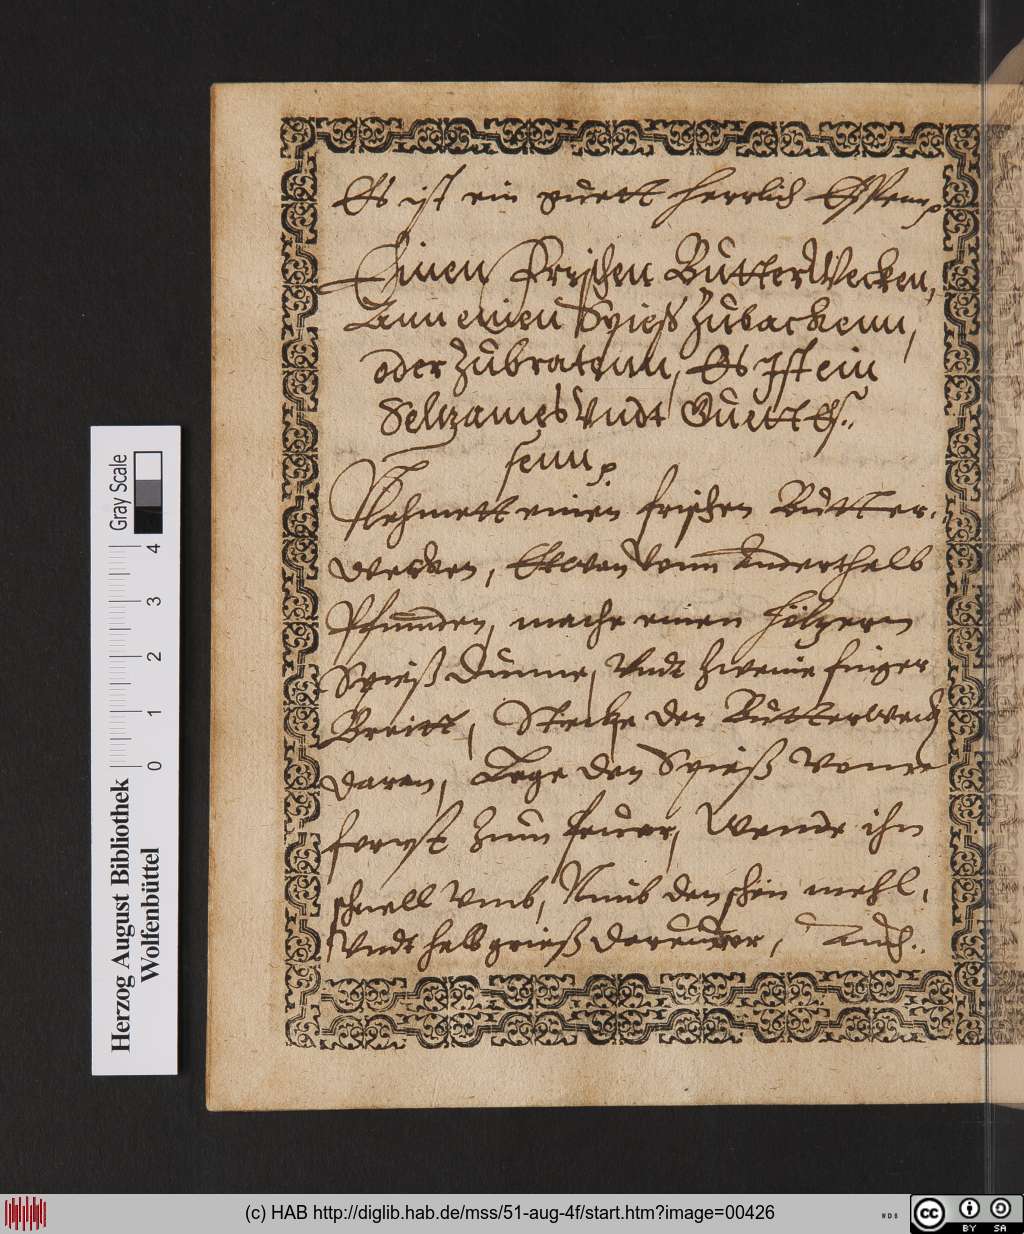 Es ist ein guett herrlich Essen,
Einen Frischen Butter Wecken,
Ann einen Spieß Zubachenn,
oder Zubratenn, Es Ist ein
Seltzames Vndt Guett Es⸗
senn,
Nehmett einen frischen Butter⸗
wecken, Etwan Vonn Anderthalb
Pfunnden, mache einen Höltzern
Spieß Dünne, Vndt Zweine finger
Breitt, Stecke den Butterweck
daran, Lege den Spieß Vonn
ferst Zum feuer, Wende ihn
schnell Vmb, Nimb den schön mehl,
Vndt halb grieß darunder, Auch⸗
Gray Scale
0 1 2 3 4
Herzog August Bibliothek
Wolfenbüttel
(c) HAB http://diglib.hab.de/mss/51-aug-4f/start.htm?image=00426
WDB
cc BY SA